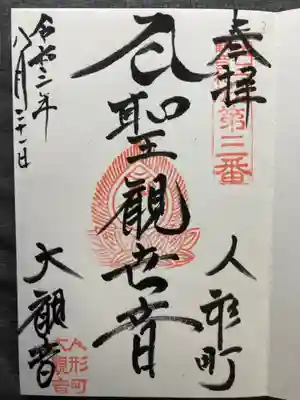 奉拝
第三番
人形町
聖觀世音
令和二年
八月二十一日
大觀音
人形町
大観音